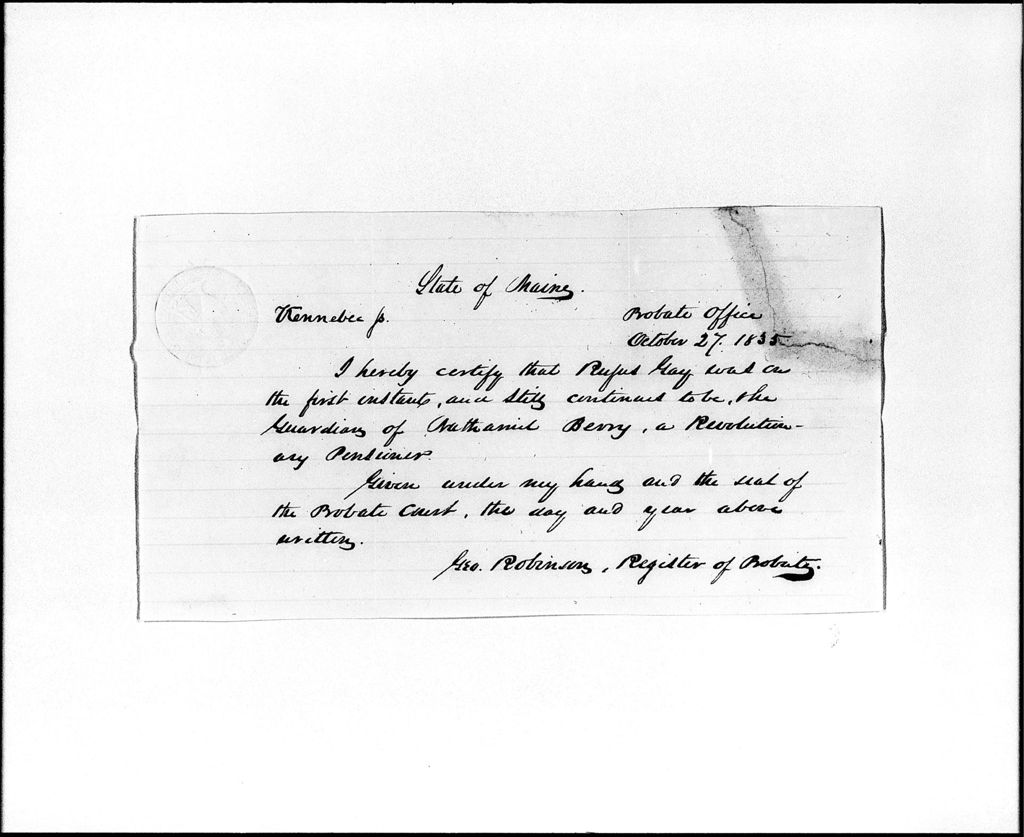 State of Maine.
Kennebec ss. Probate Office
October 27. 1835
I hereby certify that Rufus Gay was on
the first instant, and still continues to be, the
Guardian of Nathaniel Berry, a Revolution-
ary Pensioner.
Given under my hand and the seal of
the Probate Court, the day and year above
written.
Geo. Robinson, Register of Probate.